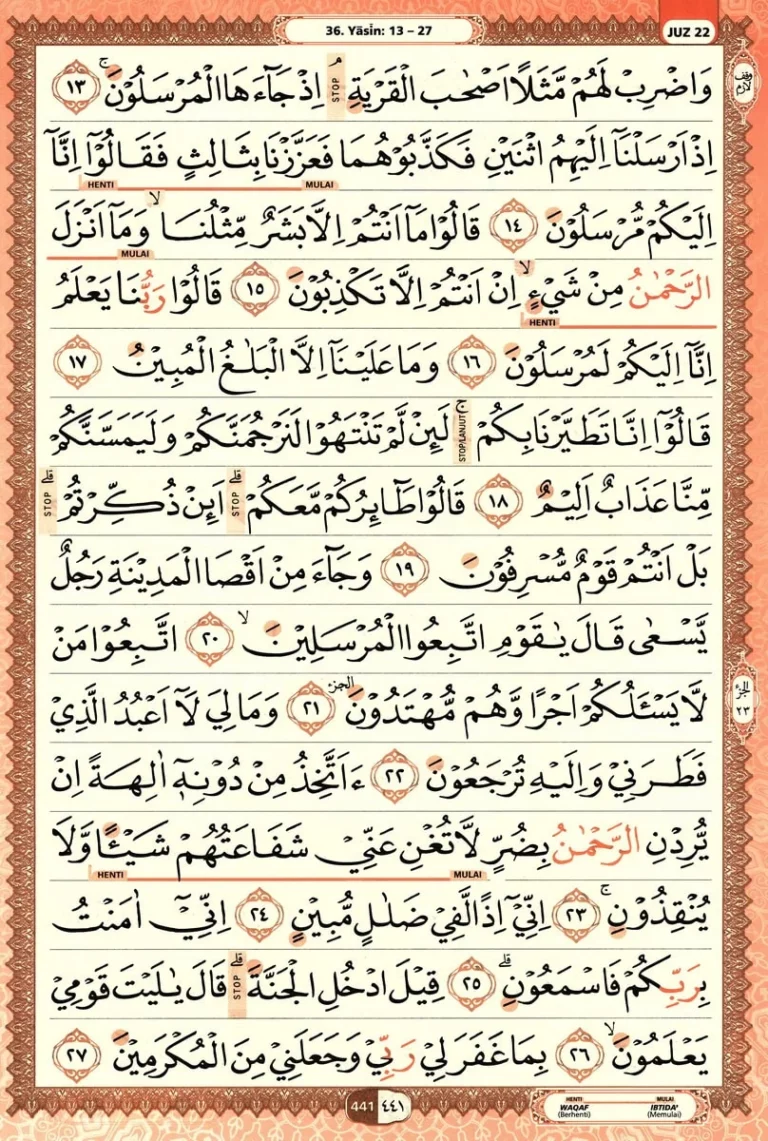 36. Yāsīn: 13 – 27
JUZ 22
وَاضْرِبْ لَهُمْ مَّثَلًا اَصْحٰبَ الْقَرْيَةِۘ اِذْ جَاۤءَهَا الْمُرْسَلُوْنَۚ ١٣
STOP
وقف لازم
اِذْ اَرْسَلْنَآ اِلَيْهِمُ اثْنَيْنِ فَكَذَّبُوْهُمَا فَعَزَّزْنَا بِثَالِثٍ فَقَالُوْٓا اِنَّآ
MULAI
HENTI
اِلَيْكُمْ مُّرْسَلُوْنَ ١٤ قَالُوْا مَآ اَنْتُمْ اِلَّا بَشَرٌ مِّثْلُنَاۙ وَمَآ اَنْزَلَ
MULAI
الرَّحْمٰنُ مِنْ شَيْءٍۙ اِنْ اَنْتُمْ اِلَّا تَكْذِبُوْنَ ١٥ قَالُوْا رَبُّنَا يَعْلَمُ
HENTI
اِنَّآ اِلَيْكُمْ لَمُرْسَلُوْنَ ١٦ وَمَا عَلَيْنَآ اِلَّا الْبَلٰغُ الْمُبِيْنُ ١٧
قَالُوْٓا اِنَّا تَطَيَّرْنَا بِكُمْۚ لَىِٕنْ لَّمْ تَنْتَهُوْا لَنَرْجُمَنَّكُمْ وَلَيَمَسَّنَّكُمْ
STOP/LANJUT
مِّنَّا عَذَابٌ اَلِيْمٌ ١٨ قَالُوْا طَاۤىِٕرُكُمْ مَّعَكُمْۗ اَىِٕنْ ذُكِّرْتُمْۗ
STOP
STOP
بَلْ اَنْتُمْ قَوْمٌ مُّسْرِفُوْنَ ١٩ وَجَاۤءَ مِنْ اَقْصَا الْمَدِيْنَةِ رَجُلٌ
يَّسْعٰى قَالَ يٰقَوْمِ اتَّبِعُوا الْمُرْسَلِيْنَۙ ٢٠ اتَّبِعُوْا مَنْ
لَّا يَسْـَٔلُكُمْ اَجْرًا وَّهُمْ مُّهْتَدُوْنَ ٢١ وَمَا لِيَ لَآ اَعْبُدُ الَّذِيْ
الجزء
الجزء ٢٣
فَطَرَنِيْ وَاِلَيْهِ تُرْجَعُوْنَ ٢٢ ءَاَتَّخِذُ مِنْ دُوْنِهٖٓ اٰلِهَةً اِنْ
يُّرِدْنِ الرَّحْمٰنُ بِضُرٍّ لَّا تُغْنِ عَنِّيْ شَفَاعَتُهُمْ شَيْـًٔا وَّلَا
MULAI
HENTI
يُنْقِذُوْنِۚ ٢٣ اِنِّيْٓ اِذًا لَّفِيْ ضَلٰلٍ مُّبِيْنٍ ٢٤ اِنِّيْٓ اٰمَنْتُ
بِرَبِّكُمْ فَاسْمَعُوْنِۗ ٢٥ قِيْلَ ادْخُلِ الْجَنَّةَۗ قَالَ يٰلَيْتَ قَوْمِيْ
STOP
يَعْلَمُوْنَۙ ٢٦ بِمَا غَفَرَ لِيْ رَبِّيْ وَجَعَلَنِيْ مِنَ الْمُكْرَمِيْنَ ٢٧
441 ٤٤١
HENTI MULAI
WAQAF IBTIDA'
(Berhenti) (Memulai)